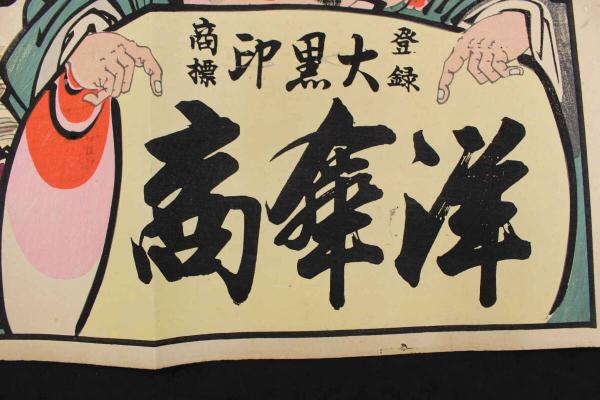 登録
大黒印
商標
洋傘商